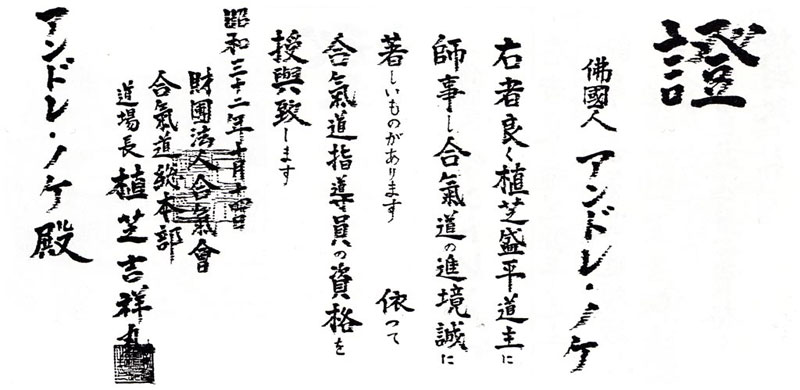 證
佛國人 アンドレ・ノケ
右者良く植芝盛平道主に
師事し合氣道の進境誠に
著しいものがあります 依つて
合氣道指導員の資格を
授與致します
昭和三十二年十月十四日
財團法人合氣會
合氣道総本部
道場長 植芝吉祥丸
アンドレ・ノケ殿